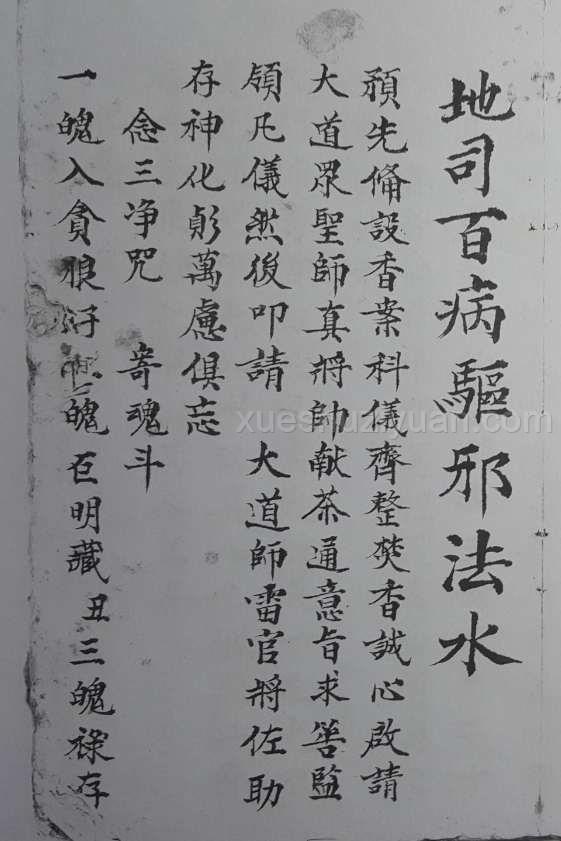 地司百病驅邪法水
預先備設香案科儀齊整焚香誠心啟請
大道眾聖師真將帥献茶通意旨求善監
領凡儀然後叩請 大道師雷官將佐助
存神化䫻萬慮俱忘
念三净咒 寄魂斗
一魄入貪狼 魄巨明藏丑三魄祿存
xueshuziyuan.com